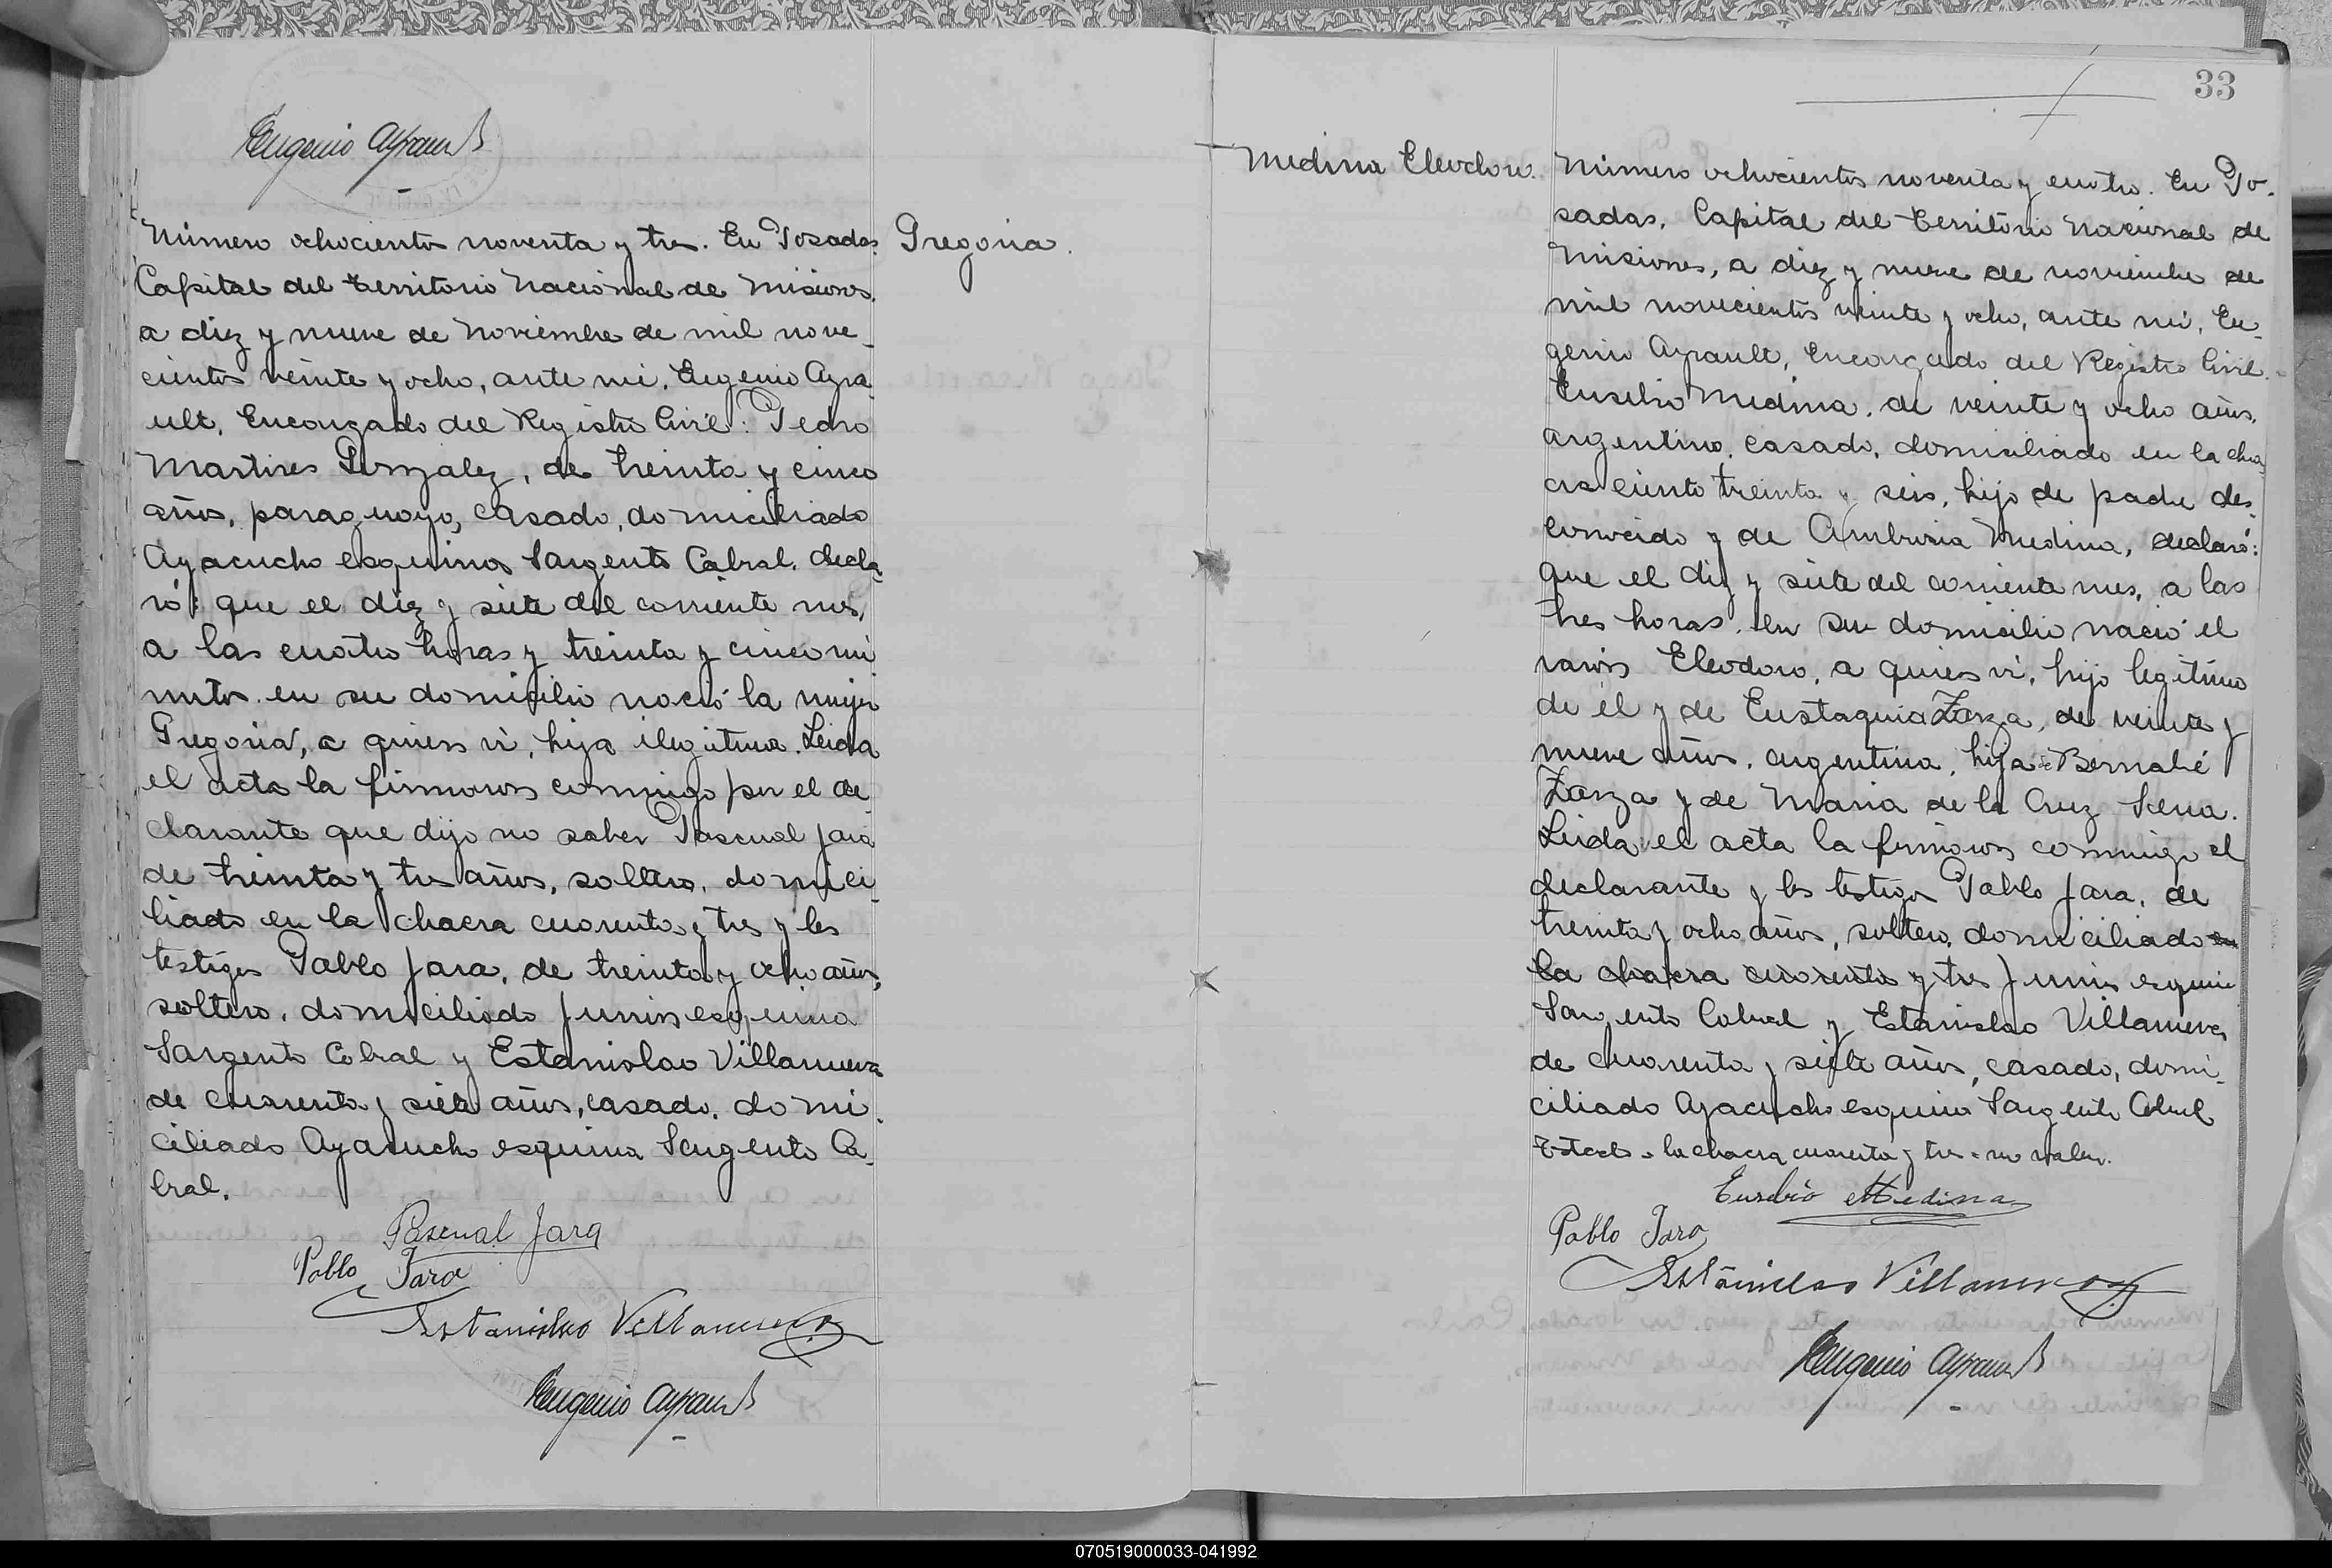 Eugenio Ayrault
Número ochocientos noventa y tres. En Posadas.
Capital del territorio Nacional de Misiones.
a diez y nueve de Noviembre de mil nove-
cientos veinte y ocho, ante mi, Eugenio Ayra-
ult, Encargado del Registro Civil: Pedro
Martires Gonzalez, de treinta y cinco
años, paraguayo, casado, domiciliado
Ayacucho esquina Sargento Cabral. decla-
ró: que el diez y siete del corriente mes,
a las cuatro horas y treinta y cinco mi-
nutos. en su domicilio nació la mujer
Gregoria, a quien vi, hija ilegitima. Leida
el acta la firmaron conmigo por el de-
clarante que dijo no saber Pascual Jara
de treinta y tres años, soltero, domici-
liado en la chacra cuarenta y tres y los
testigos Pablo Jara, de treinta y ocho años,
soltero, domiciliado Junin esquina
Sargento Cabral y Estanislao Villanueva
de cuarenta y siete años, casado, domi-
ciliado Ayacucho esquina Sargento Ca-
bral.
Pascual Jara
Pablo Jara
Estanislao Villanueva
Eugenio Ayrault
Gregoria.
33
Medina Eleodoro.
Número ochocientos noventa y cuatro. En Po-
sadas. Capital del Territorio Nacional de
Misiones, a diez y nueve de noviembre de
mil novecientos veinte y ocho, ante mi, Eu-
genio Ayrault, Encargado del Registro Civil.
Eusebio Medina, de veinte y ocho años,
argentino, casado, domiciliado en la cha-
cra ciento treinta y seis, hijo de padre des-
conocido y de Ambrosia Medina, declaró:
que el diez y siete del corriente mes, a las
tres horas. en su domicilio nació el
varón Eleodoro, a quien vi, hijo legitimo
de él y de Eustaquia Zarza, de veinte y
nueve años, argentina, hija de Bernabé
Zarza y de Maria de la Cruz Sena.
Leida el acta la firmaron conmigo el
declarante y los testigos Pablo Jara, de
treinta y ocho años, soltero, domiciliado en
la chacra cuarenta y tres Junin esquina
Sargento Cabral y Estanislao Villanueva
de cuarenta y siete años, casado, domi-
ciliado Ayacucho esquina Sargento Cabral
Testado = la chacra cuarenta y tres = no valen.
Eusebio Medina
Pablo Jara
Estanislao Villanueva
Eugenio Ayrault
070519000033-041992